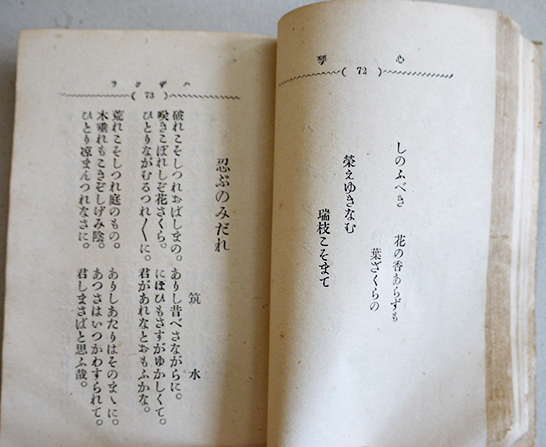 心琴
( 72 )
しのふべき　花の香あらずも
葉ざくらの
榮えゆきなむ
瑞枝こそまて
( 73 )
忍ぶのみだれ
筑水
破れこそしつれおばしまの。　ありし昔べさながらに。
咲きこぼれしぞ花さくら。　にほひもさすがゆかしくて。
ひとりながむるつれ〴〵に。　君があれなとおもふかな。
荒れこそしつれ庭のもの。　ありしあたりはそのまゝに。
木垂れもこきぞしげみ陰。　あつさはいつかわすられて。
ひとり凉まんつれなさに。　君しまさばと思ふ哉。